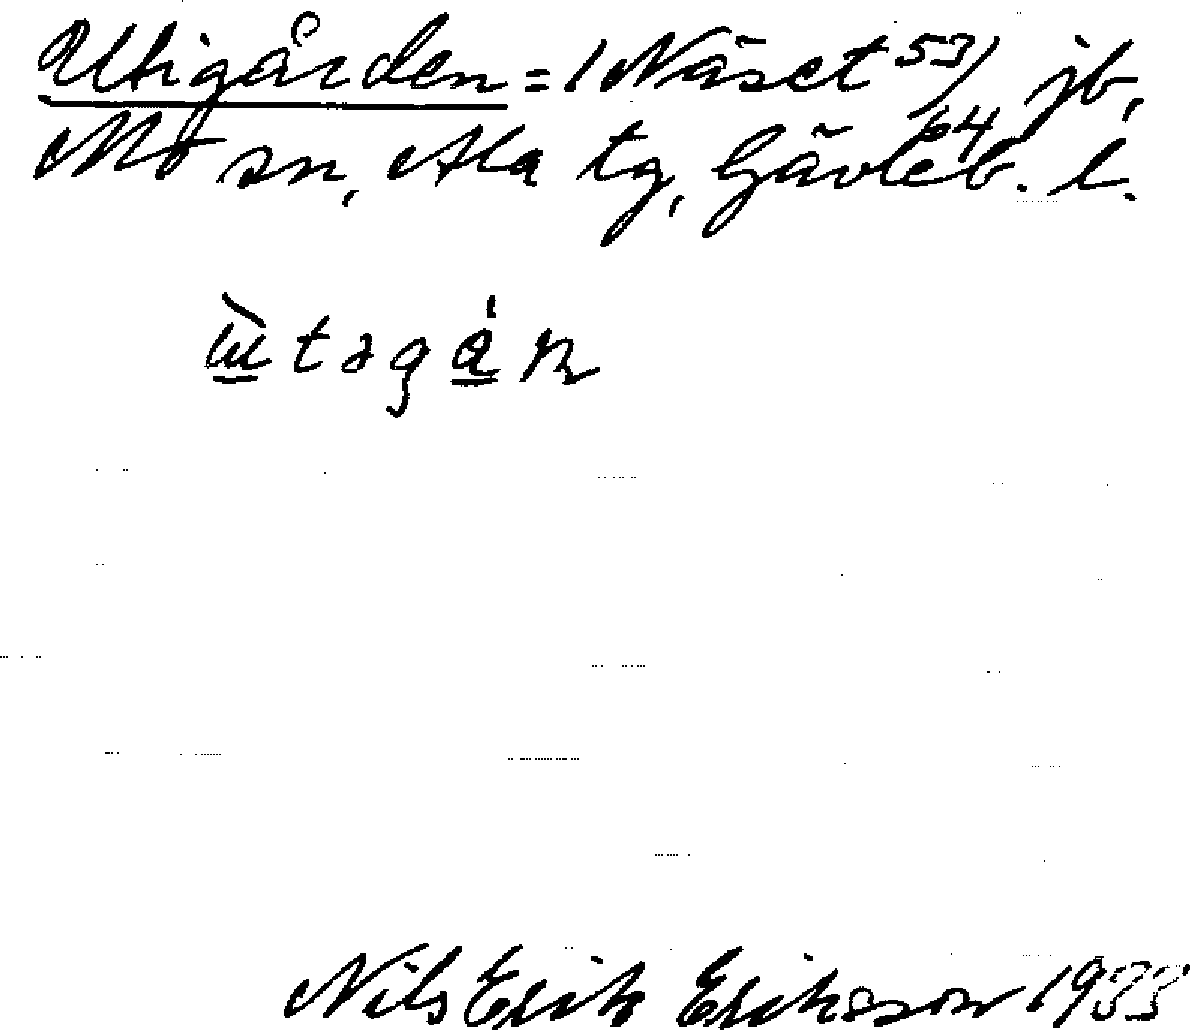 Utigården = 1 Näset 53/ jb,
64
Mo sn, Ala tg, Gävleb. l.
ɯ̀tagán
Nils Erik Eriksson 1933